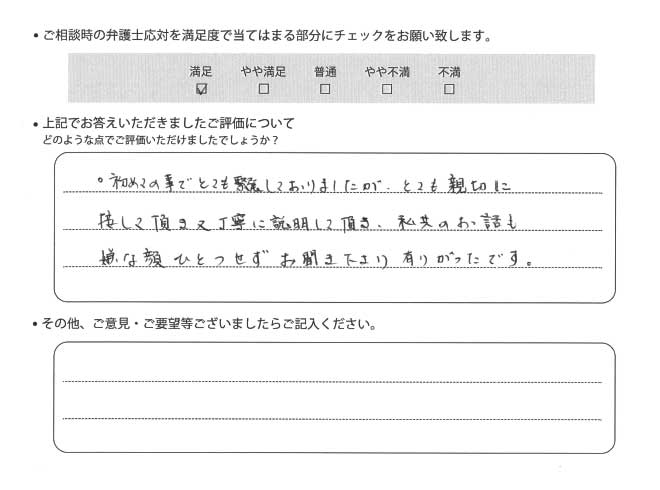 • ご相談時の弁護士応対を満足度で当てはまる部分にチェックをお願い致します。
満足 やや満足 普通 やや不満 不満
☑ ☐ ☐ ☐ ☐
• 上記でお答えいただきましたご評価について
どのような点でご評価いただけましたでしょうか？
○初めての事でとても緊張しておりましたが、とても親切に
接して頂き又丁寧に説明して頂き、私共のお話も
嫌な顔ひとつせずお聞き下さり有りがたかったです。
• その他、ご意見・ご要望等ございましたらご記入ください。